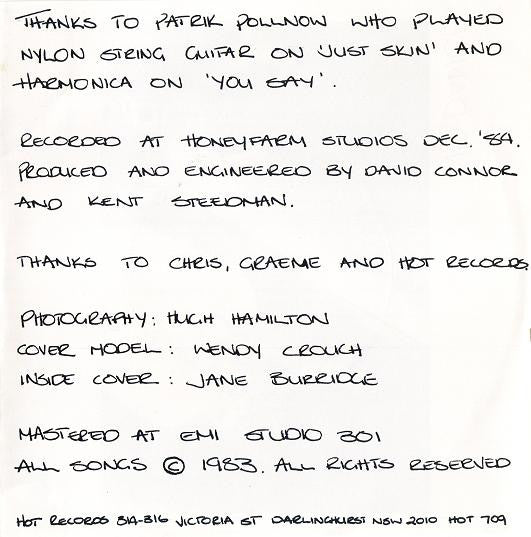 THANKS TO PATRIK POLLNOW WHO PLAYED
NYLON STRING GUITAR ON 'JUST SKIN' AND
HARMONICA ON 'YOU SAY'.
RECORDED AT HONEYFARM STUDIOS DEC. '84.
PRODUCED AND ENGINEERED BY DAVID CONNOR
AND KENT STEEDMAN.
THANKS TO CHRIS, GRAEME AND HOT RECORDS
PHOTOGRAPHY: HUGH HAMILTON
COVER MODEL: WENDY CROUCH
INSIDE COVER: JANE BURRIDGE
MASTERED AT EMI STUDIO 301
ALL SONGS © 1983. ALL RIGHTS RESERVED
HOT RECORDS 314-316 VICTORIA ST DARLINGHURST NSW 2010 HOT 709